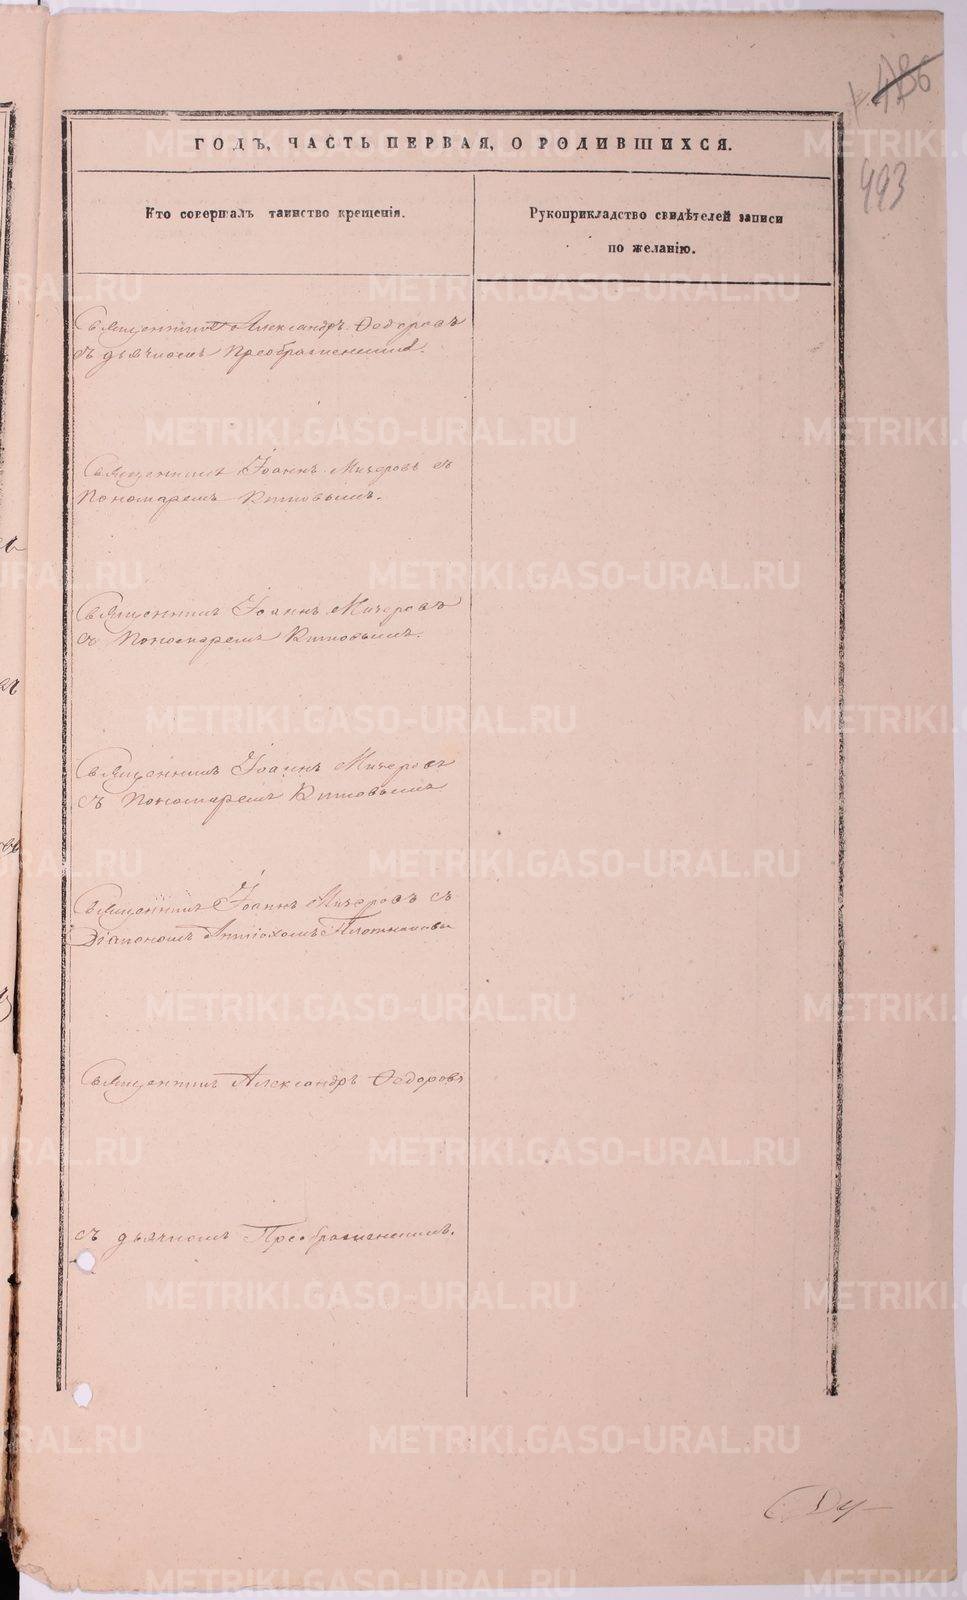 486
493
ГОДЪ, ЧАСТЬ ПЕРВАЯ, О РОДИВШИХСЯ.
Кто совершалъ таинство крещенія.
Рукоприкладство свидѣтелей записи
по желанію.
Священникъ Александръ Федоровъ
съ дьячкомъ Преображенскимъ.
Священникъ Іоаннъ Мичеровъ съ
Пономаремъ Китовымъ.
Священникъ Іоаннъ Мичеровъ
съ Пономаремъ Китовымъ.
Священникъ Іоаннъ Мичеровъ
съ Пономаремъ Китовымъ
Священникъ Іоаннъ Мичеровъ съ
Діакономъ Антіохомъ Плотниковы
Священникъ Александръ Федоровъ
съ дьячкомъ Преображенскимъ.
METRIKI.GASO-URAL.RU